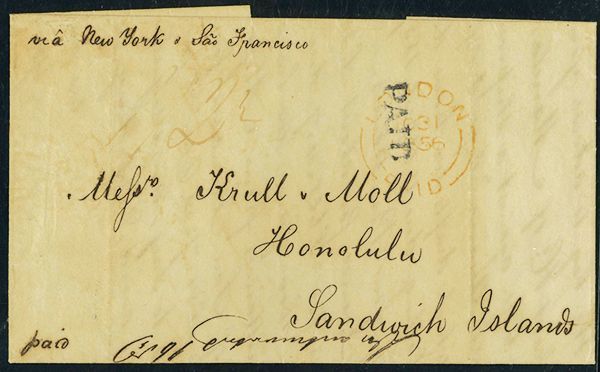 viâ New York & São Francisco
LONDON
31
55
PAID
PAID
Messrs Krull & Moll
Honolulu
Sandwich Islands
paid